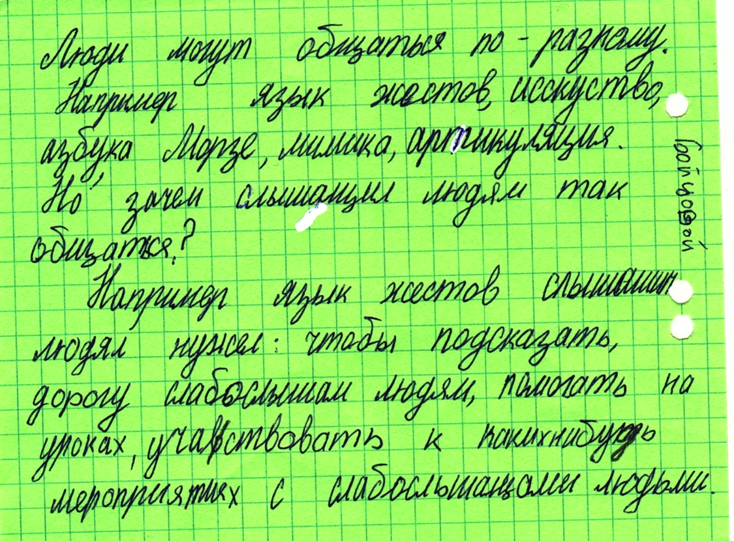 Люди могут общаться по-разному.
Например язык жестов, исскуство,
азбука Морзе, мимика, артикуляция.
Но зачем слышащим людям так
общаться?
Например язык жестов слышащим
людям нужен: чтобы подсказать,
дорогу слабослышам людям, помогать на
уроках, учавствовать к какихнибудь
мероприятиях с слабослышащами людьми.